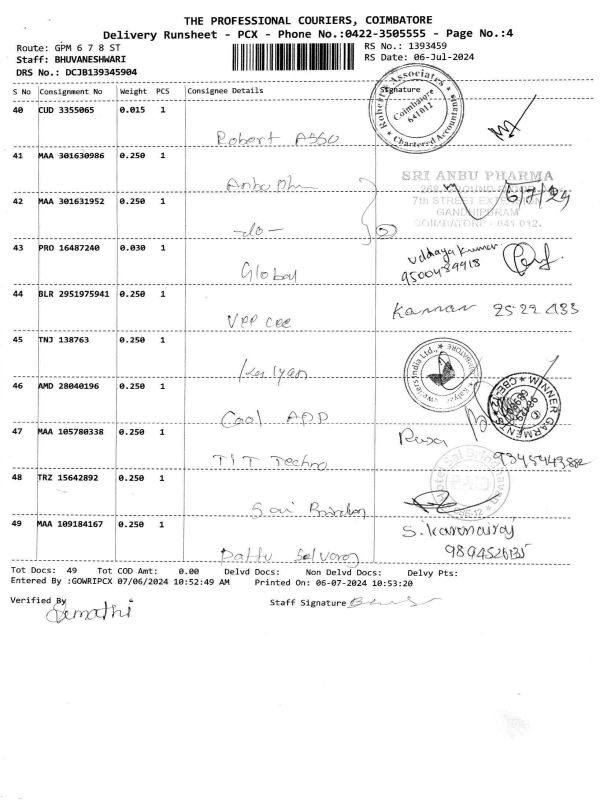 THE PROFESSIONAL COURIERS, COIMBATORE
Delivery Runsheet - PCX - Phone No.:0422-3505555 - Page No.:4
Route: GPM 6 7 8 ST RS No.: 1393459
Staff: BHUVANESHWARI RS Date: 06-Jul-2024
DRS No.: DCJB139345904
S No Consignment No Weight PCS Consignee Details Signature
Robert & Associates * Chartered Accountants *
Coimbatore
641012
40 CUD 3355065 0.015 1
Robert ASSO
41 MAA 301630986 0.250 1
SRI ANBU PHARMA
Anbu Ph
6/7/24
42 MAA 301631952 0.250 1
7th STREET EXTENSION
GANDHIPURAM
-do- 2
COIMBATORE - 641 012.
43 PRO 16487240 0.030 1
Udhaya Kumar
Global 9500489918
44 BLR 2951975941 0.250 1
Kannan 25 22 483
VPP CEE
45 TNJ 138763 0.250 1
Kalyan
46 AMD 28040196 0.250 1
WINNER GARMENTS * CBE-12 *
Cool APP
47 MAA 105780338 0.250 1
TIT Techno
48 TRZ 15642892 0.250 1
PAID
CBE-12
Sai
49 MAA 109184167 0.250 1
S. Karunairaj
9894526135
Pattu Selvaraj
Tot Docs: 49 Tot COD Amt: 0.00 Delvd Docs: Non Delvd Docs: Delvy Pts:
Entered By :GOWRIPCX 07/06/2024 10:52:49 AM Printed On: 06-07-2024 10:53:20
Verified By Staff Signature